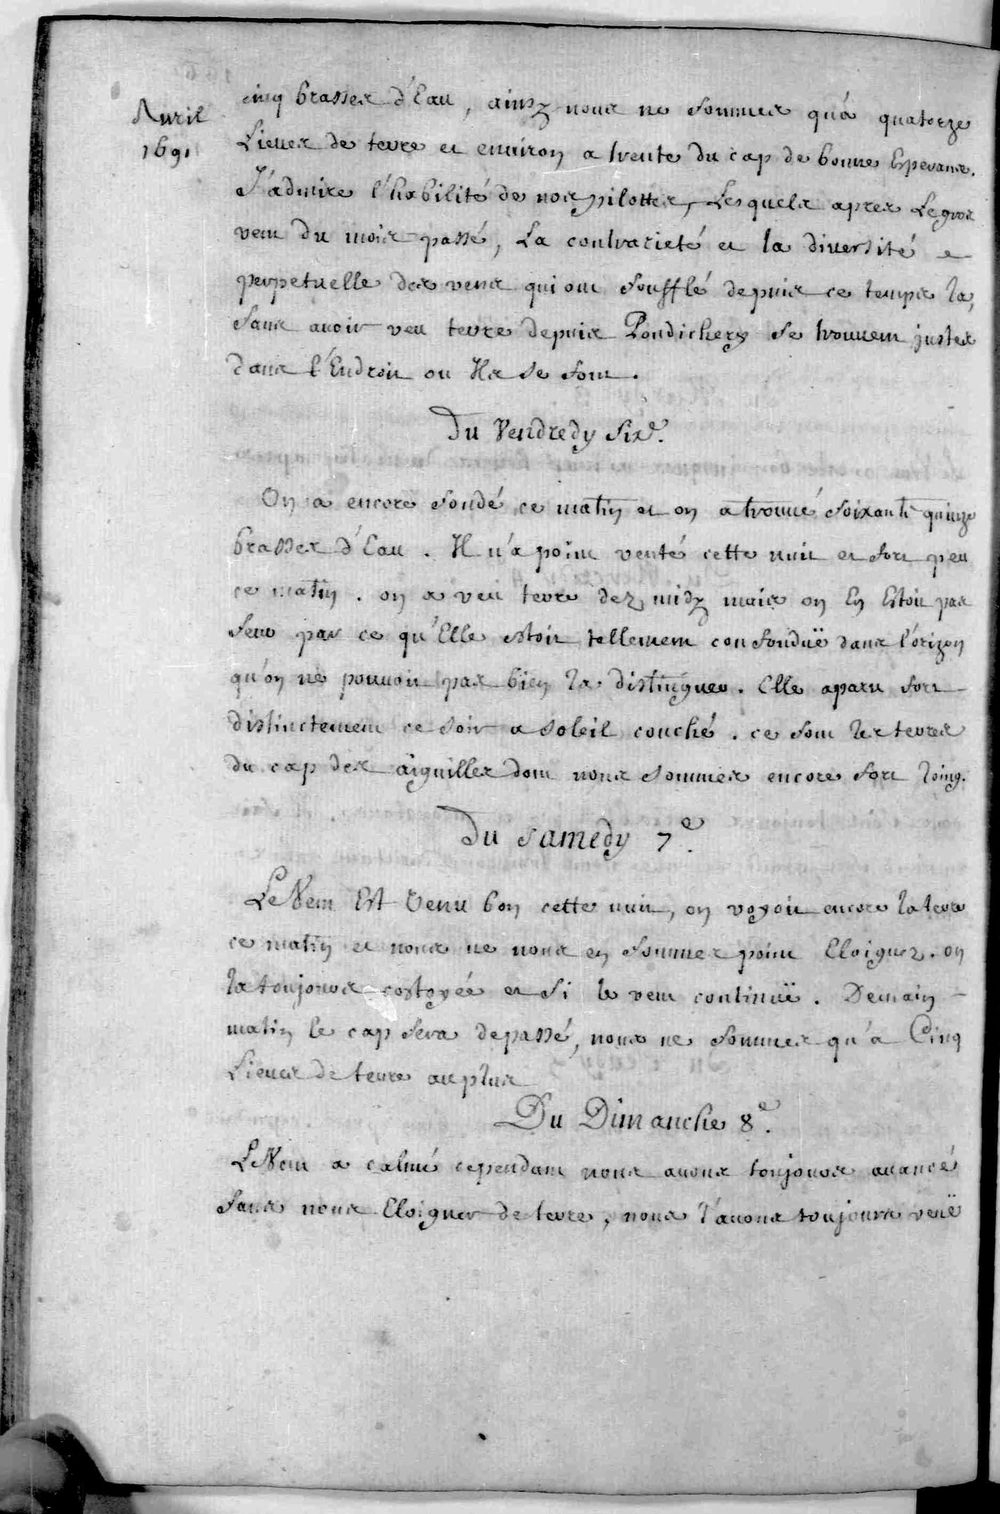 Avril
1691
cinq brasses d'Eau, ainsy nous ne sommes qu'a quatorze
Lieues de terre et environ a trente du cap de bonne Esperance.
J'admire l'habilité de nos pilottes, Lesquels apres Le gros
vent du mois passé, La contrarieté et la diversité
perpetuelle des vens qui ont soufflé depuis ce temps la,
sans avoir veu terre depuis Pondichery se trouvent justes
dans l'Endroit ou Ils se font.
Du Vendredy six.e
On a encore sondé ce matin et on a trouvé soixante quinze
brasses d'Eau. Il n'a point venté cette nuit et fort peu
ce matin. on a veu terre dez midy mais on En Estoit pas
seur par ce qu'Elle estoit tellement confonduë dans l'orizon
qu'on ne pouvoit pas bien la distinguer. Elle a paru fort
distinctement ce soir a soleil couché. ce sont les terres
du cap des aiguilles dont nous sommes encore fort loing.
Du samedy 7.e
Le Vent Est Venu bon cette nuit, on voyoit encore la terre
ce matin et nous ne nous en sommes point Eloignez. on
la toujours costoyée et si le vent continuë. Demain
matin le cap sera depassé, nous ne sommes qu'a Cinq
Lieues de terre au plus
Du Dimanche 8.e
Le Vent a calmé cependant nous avons toujours avancé
sans nous Eloigner de terre, nous l'avons toujours veuë